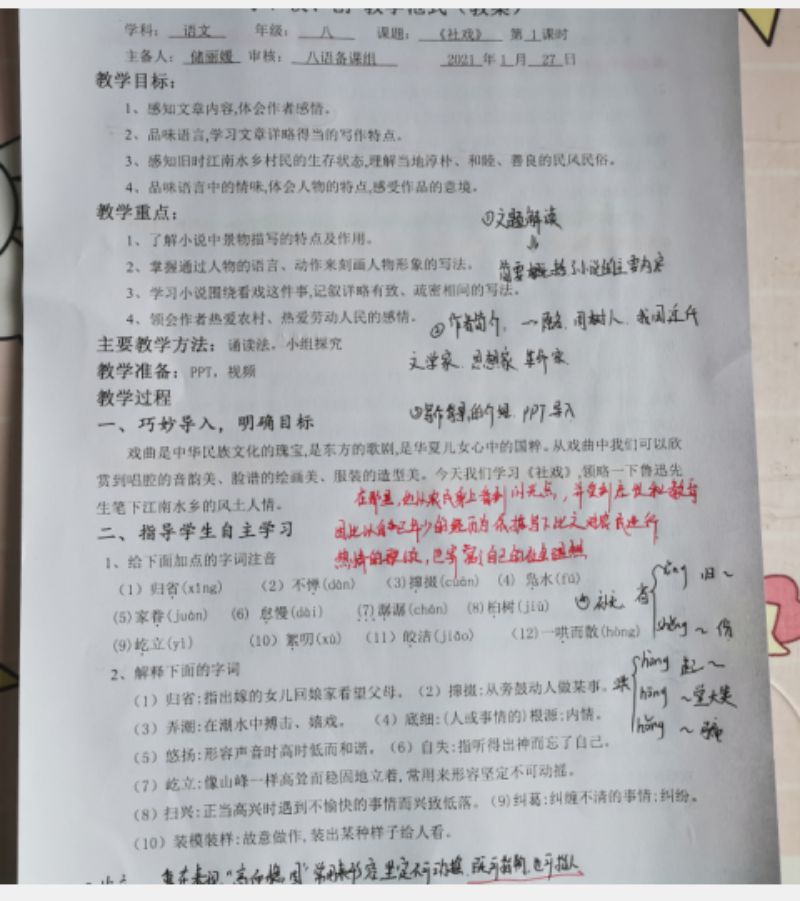 教学范式（教案）
学科： 语文 年级： 八 课题： 《社戏》 第 1 课时
主备人： 储丽媛 审核： 八语备课组 2021 年 1 月 27 日
教学目标：
1、感知文章内容,体会作者感情。
2、品味语言,学习文章详略得当的写作特点。
3、感知旧时江南水乡村民的生存状态,理解当地淳朴、和睦、善良的民风民俗。
4、品味语言中的情味,体会人物的特点,感受作品的意境。
教学重点：
①文题解读
1、了解小说中景物描写的特点及作用。
2、掌握通过人物的语言、动作来刻画人物形象的写法。
简要概括了小说的主要内容
3、学习小说围绕看戏这件事,记叙详略有致、疏密相间的写法。
4、领会作者热爱农村、热爱劳动人民的感情。
②作者简介, 原名 周树人, 我国近代
主要教学方法：诵读法，小组探究
文学家 思想家 革命家
教学准备：PPT，视频
教学过程
③写作背景的介绍 PPT导入
一、巧妙导入，明确目标
戏曲是中华民族文化的瑰宝,是东方的歌剧,是华夏儿女心中的国粹。从戏曲中我们可以欣
赏到唱腔的音韵美、脸谱的绘画美、服装的造型美。今天我们学习《社戏》,领略一下鲁迅先
生笔下江南水乡的风土人情。
在那里,他从农民身上看到闪光点,并受到
因此以自己年少的经历为依据写下此文对农民进行
热情的歌颂,
二、指导学生自主学习
1、给下面加点的字词注音
（1）归省(xǐng) （2）不惮(dàn) （3)撺掇(cuān) （4）凫水(fú)
（5)家眷(juàn) （6）怠慢(dài) （7)潺潺(chán) （8)桕树(jiù)
④补充 省 xǐng 归～
shěng ～ 俭
（9)屹立(yì) （10）絮叨(xù) （11）皎洁(jiǎo) （12)一哄而散(hòng)
2、解释下面的字词
哄 hòng 起～
hōng ～堂大笑
hǒng ～ 骗
（1）归省:指出嫁的女儿回娘家看望父母。（2）撺掇:从旁鼓动人做某事。
（3）弄潮:在潮水中搏击、嬉戏。 （4）底细:(人或事情的)根源;内情。
（5）悠扬:形容声音时高时低而和谐。（6）自失:指听得出神而忘了自己。
（7）屹立:像山峰一样高耸而稳固地立着,常用来形容坚定不可动摇。
（8）扫兴:正当高兴时遇到不愉快的事情而兴致低落。（9)纠葛:纠缠不清的事情;纠纷。
（10）装模装样:故意做作,装出某种样子给人看。
重在表现“高而稳固”常用来形容坚定不可动摇, 既可指物,也可指人